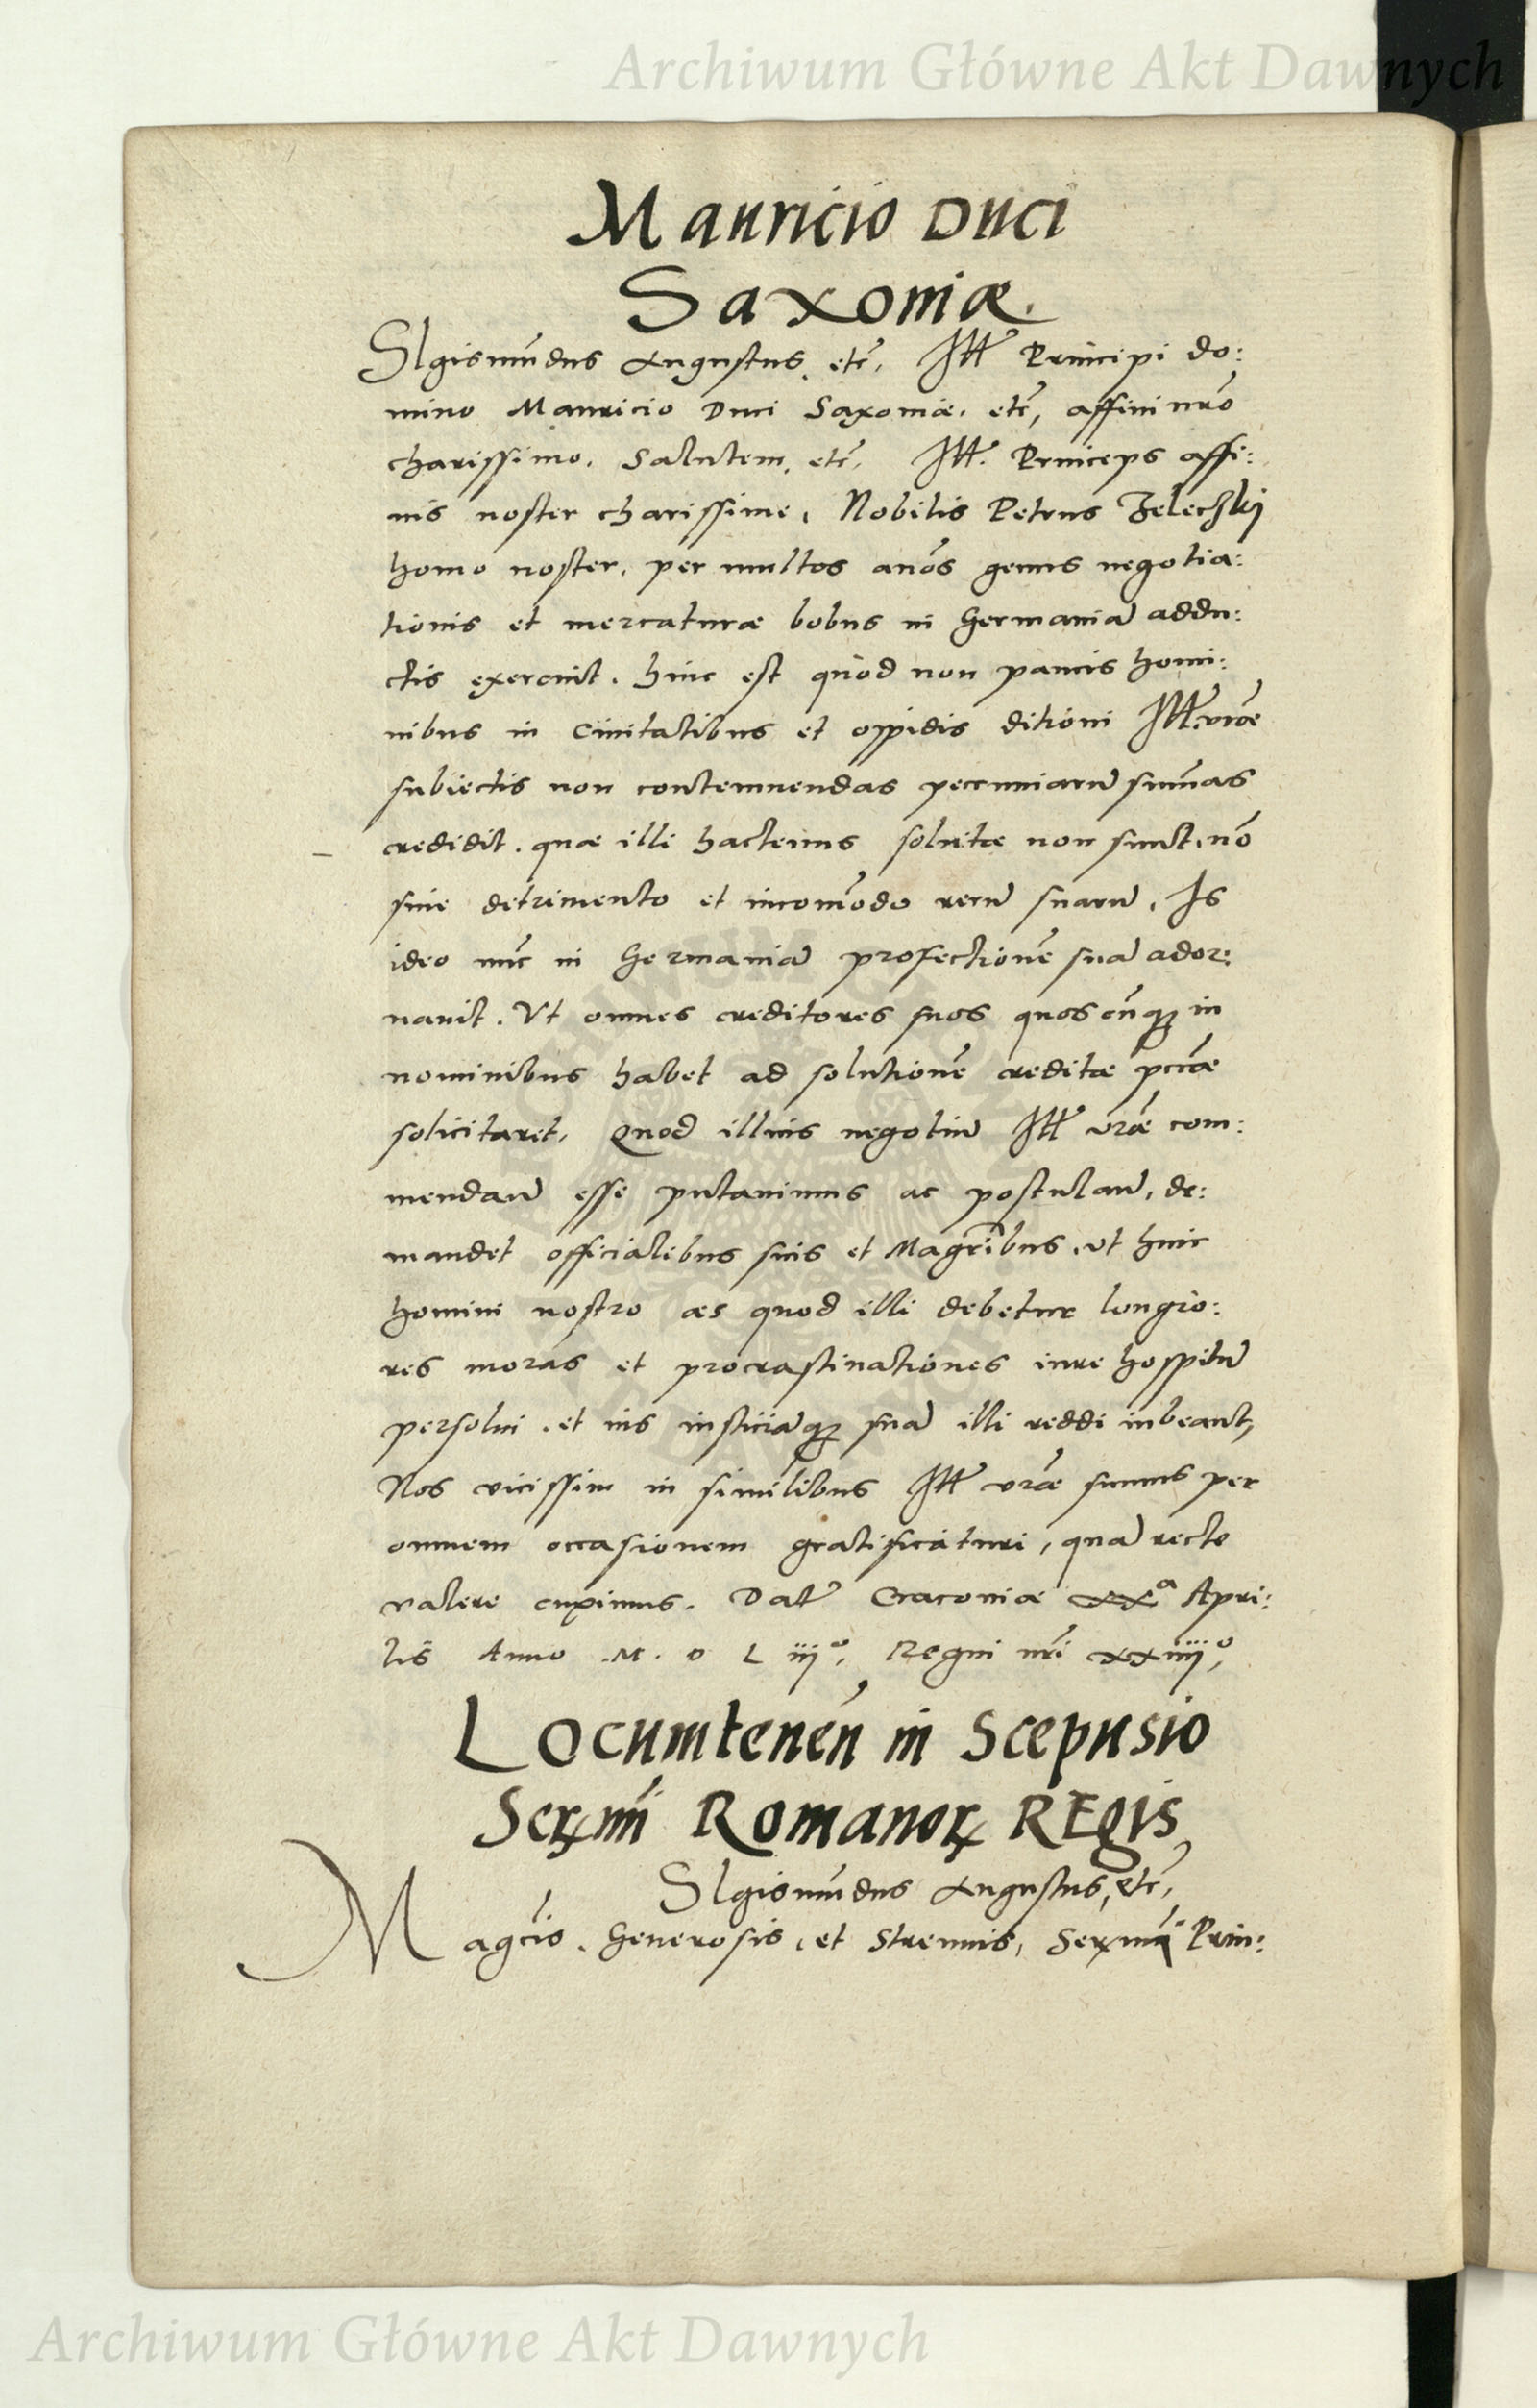 Archiwum Główne Akt Dawnych
Mauricio Duci
Saxoniæ.
SIgismūdus Augustus. etc̄, Ill̃ Principi do:
mino Mauricio Duci Saxoniæ. etc̄, affini nr̃o
charissimo. Salutem. etc̄, Ill̃. Princeps affi:
nis noster charissime, Nobilis Petrus Zelechski
homo noster, per multos an̄os genus negotia:
tionis et mercaturæ bobus in Germaniã addu:
ctis exercuit. hinc est quòd non paucis homi:
nibus in Ciuitatibus et oppidis ditioni Ill̃. vr̃æ
subiectis non contemnendas pecuniarũ sum̄as
credidit. quæ illi hactenus solutæ non sunt. nõ
sine detrimento et incom̄odo rerũ suarũ, Is
ideo nũc in Germaniã profectionẽ suã ador:
nauit. Vt omnes creditores suos quoscũqꝫ in
nominibus habet ad solutionẽ creditæ pecc̃æ
solicitaret, Quod illius negotiũ Ill̃ vr̃æ com:
mendanð esse putauimus ac postulanð, de:
mandet officialibus suis et Magr̃ibus. vt huic
homini nostro æs quod illi debetur longio:
res moras et procrastinationes iure hospitũ
persolui. et ius iusticiãqꝫ suã illi reddi iubeant,
Nos vicissim in similibus Ill̃ vr̃æ sumus per
omnem occasionem gratificaturi, quã recte
valere cupimus. Dat̃ Cracouiæ xxᵃ Apri:
lis Anno .M. D L iijº, Regni nr̃i xxiiijº,
LOcumtenen̄ in Scepusio
Serꝝmi Romanoꝝ REgis
SIgismūdus Augustus, etc̄,
Magc̃is. Generosis. et Strenuis, Serꝝmi Prin:
Archiwum Główne Akt Dawnych